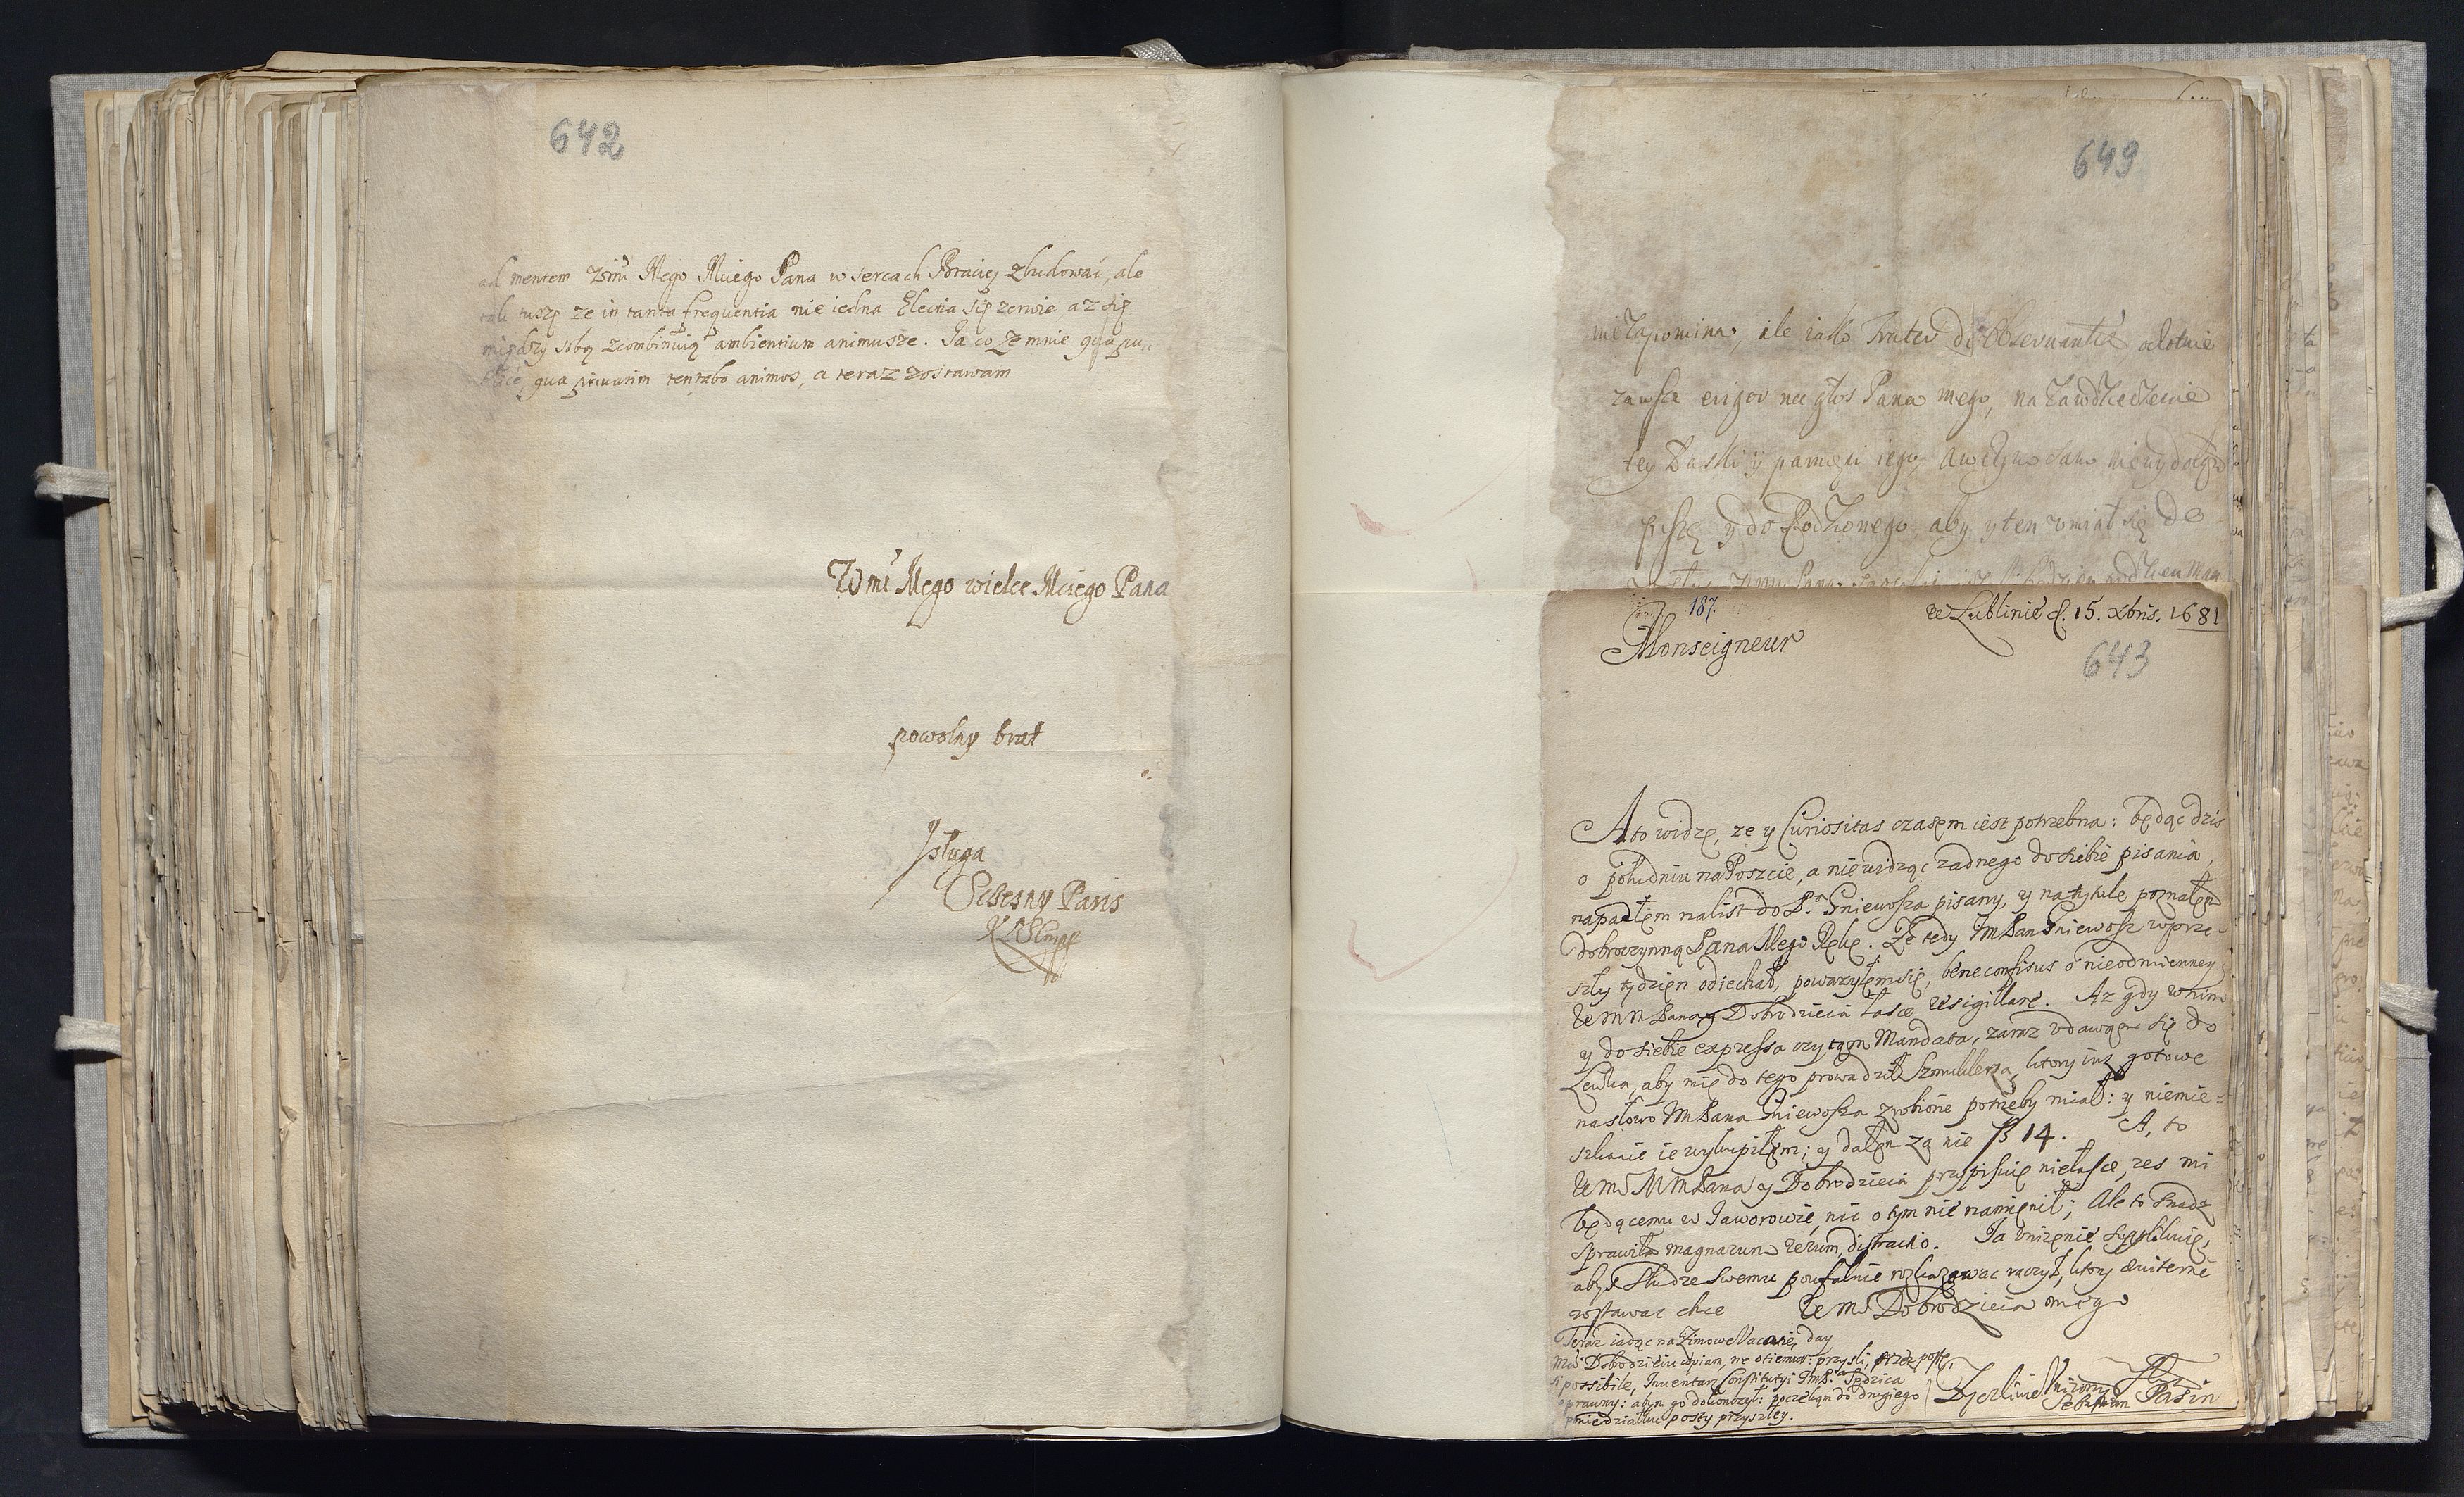 642
ad mentem Wmi Mego Mciego Pana w sercach Braciey zbudować, ale
tuszę ze in tanta frequentia nie iedna Electia się zerwie, az się
między sobą zcombinuią ambientium animusze. Ja co ze mnie qua pu-
blice, qua privatim tentabo animos, a teraz zostawam
Wmi Mego wielce Mciego Pana
powolny brat
y sługa
Sczesny Paris
649
nie zapomina, ale iako frater de observantia ochotnie
zawsze erigor na głos Pana mego, na zawdzięczenie
tey Łaski y pamięci iego,
piszę y do Podzonego, aby y ten umiał się do
187.
we Lublinie d. 15. Xbris. 1681
Monseigneur
643
A to widzę, ze y Curiositas czasem iest potrzebna: będąc dzis
o południu na Poszcie, a nie widząc zadnego do siebie pisania,
napadłem na list do P.ᵃ Gniewosza pisany, y na tytule poznałem
dobroczynną Pana Mego Rękę. Ze tedy Im Pan Gniewosz w prze-
szły tydzien odiechał, powazyłem się, bene confisus o nieodmienney
Wm M Pana y Dobrodzieia łasce resigillare. Az gdy w nim
y do siebie expressa czytam Mandata, zaraz udawam się do
Lewka, aby mię do tego prowadził Szmuklerza, ktory iuz gotowe
na słowo Im Pana Gniewosza zrobione potrzeby miał: y niemie-
szkanie ie wykupiłem; y dałem za nie 14. A, to
Wm M Pana y Dobrodzieia przypisuię niełasce, zes mi
będącemu w Jaworowie, nic o tym nie namienił; Ale to snadz
sprawiła magnarum rerum distractio. Ja unizenie supplikuię,
abyś słudze swemu poufalnie rozkazowac raczył, ktory æviterne
zostawac chce Wm Dobrodzieia mego
Teraz iadąc na Zimowe Vacanie, day
possibile, Inventarz Constitutyi ImP. Sędzica
prawny: abym go dokonczył: poczekam do drugiego
poniedziałku poszty przyszłey.
Zyczliwie Unizony Sł
Sebastian Pasin